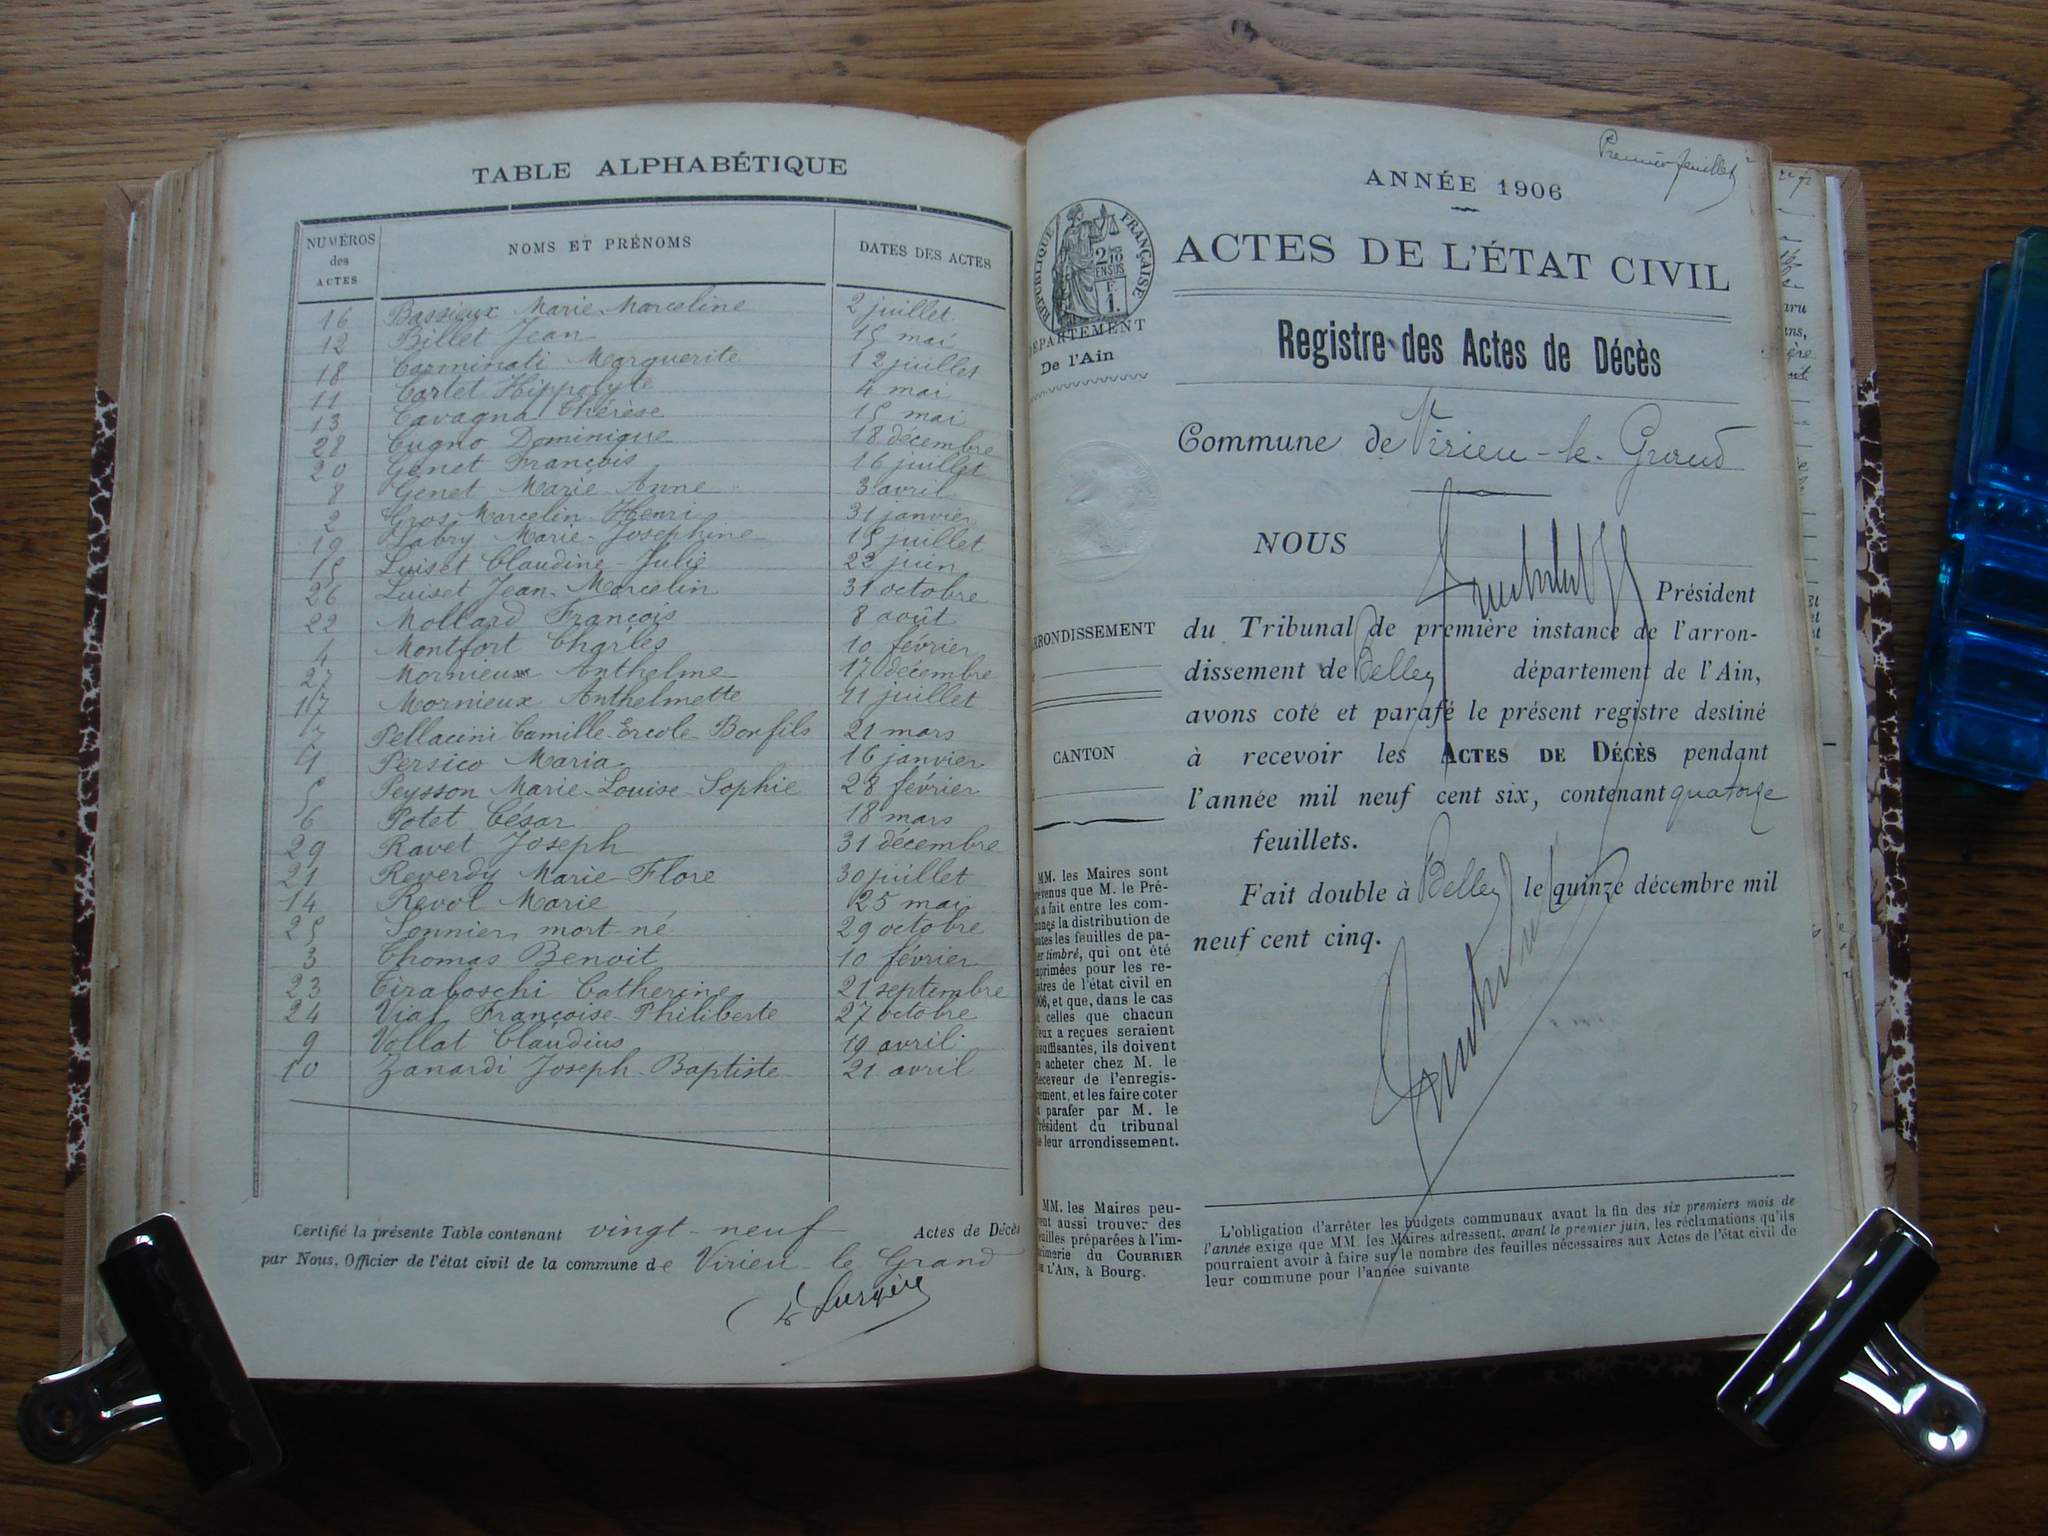 TABLE ALPHABÉTIQUE
NUMÉROS des ACTES NOMS ET PRÉNOMS DATES DES ACTES
16 Bassieux Marie-Marceline 2 juillet
12 Billet Jean 15 mai
18 Carminati Marguerite 12 juillet
11 Cartet Hippolyte 4 mai
13 Cavagna Thérèse 15 mai
28 Cugno Dominique 18 décembre
20 Genet François 16 juillet
8 Genet Marie-Anne 3 avril
2 Gros Marcelin-Henri 31 janvier
19 Labry Marie-Josephine 15 juillet
15 Luiset Claudine-Julie 22 juin
26 Luiset Jean-Marcelin 31 octobre
22 Mollard François 8 août
4 Montfort Charles 10 février
27 Mornieux Anthelme 17 décembre
17 Mornieux Anthelmette 11 juillet
7 Pellacini Camille-Ercole-Bonfils 21 mars
1 Persico Maria 16 janvier
5 Peysson Marie-Louise-Sophie 28 février
6 Potet César 18 mars
29 Ravet Joseph 31 décembre
21 Reverdy Marie-Flore 30 juillet
14 Revol Marie 25 mai
25 Sonnier mort-né 29 octobre
3 Thomas Benoit 10 février
23 Tiraboschi Catherine 21 septembre
24 Vial Françoise-Philiberte 27 octobre
9 Vollat Claudius 19 avril
10 Zanardi Joseph-Baptiste 21 avril
Certifié la présente Table contenant vingt-neuf Actes de Décès
par Nous, Officier de l'état civil de la commune de Virieu-le-Grand
Premier feuillet
ANNÉE 1906
ACTES DE L'ÉTAT CIVIL
RÉPUBLIQUE FRANÇAISE
2/10 EN SUS
F. 1.
DÉPARTEMENT
De l'Ain
Registre des Actes de Décès
Commune de Virieu-le-Grand
NOUS
Président
du Tribunal de première instance de l'arron-
dissement de Belley département de l'Ain,
avons coté et parafé le présent registre destiné
à recevoir les ACTES DE DÉCÈS pendant
l'année mil neuf cent six, contenant quatorze
feuillets.
Fait double à Belley le quinze décembre mil
neuf cent cinq.
RRONDISSEMENT
CANTON
MM. les Maires sont
évenus que M. le Pré-
t a fait entre les com-
unes la distribution de
utes les feuilles de pa-
er timbré, qui ont été
primées pour les re-
stres de l'état civil en
06, et que, dans le cas
celles que chacun
eux a reçues seraient
suffisantes, ils doivent
acheter chez M. le
Receveur de l'enregis-
rement, et les faire coter
t parafer par M. le
résident du tribunal
e leur arrondissement.
MM. les Maires peu-
vent aussi trouver des
euilles préparées à l'im-
primerie du COURRIER
DE L'AIN, à Bourg.
L'obligation d'arrêter les budgets communaux avant la fin des six premiers mois de
l'année exige que MM. les Maires adressent, avant le premier juin, les réclamations qu'ils
pourraient avoir à faire sur le nombre des feuilles nécessaires aux Actes de l'état civil de
leur commune pour l'année suivante